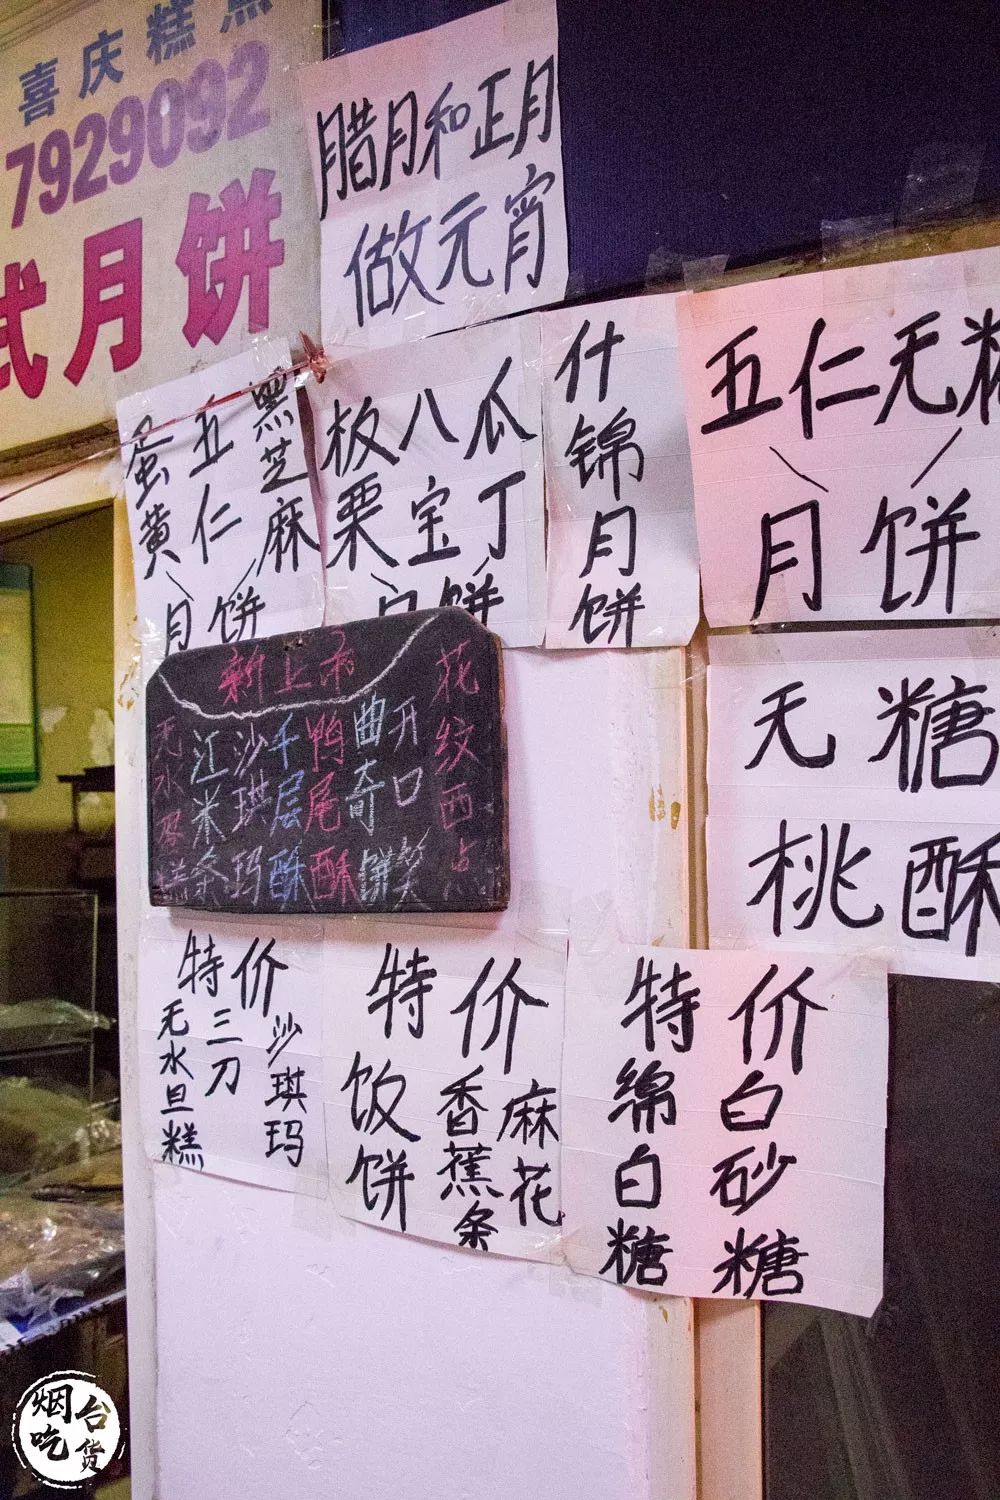 喜庆糕点
7929092
式月饼
腊月和正月
做元宵
蛋黄 五仁 黑芝麻
月饼
板栗 八宝 瓜丁
月饼
什锦月饼
五仁无糖
月饼
无糖
桃酥
新上市
无水蛋糕
江米条
沙琪玛
千层酥
鸭尾酥
曲奇饼
开口笑
花纹西点
特价
无水旦糕
三刀
沙琪玛
特价
饭饼
香蕉条
麻花
特价
绵白糖
白砂糖
烟台
吃货